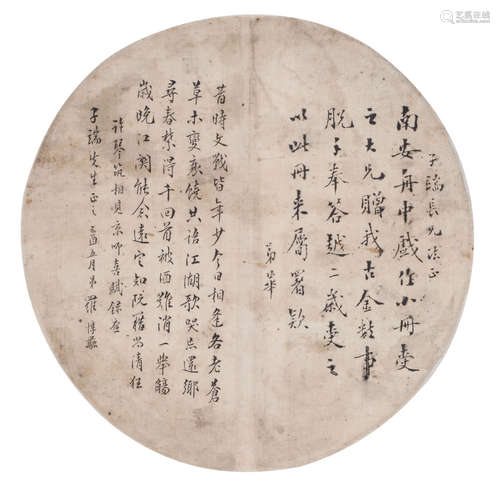 南安舟中戲作小冊變
之大兄贈我古金數事
脫手奉答越二歲變之
以此冊來屬署款
弟華
子瑞長兄法正
昔時文戰皆年少今日相逢各老蒼
草木變衰饒共語江湖歌哭忘還鄉
尋春禁得千回首被酒難消一舉觴
歲晚江關能念遠定知阮籍為清狂
許琴筑相見京師喜賦錄應
子瑞先生正之 五月弟羅惇
艺典在线
yidianchina.com